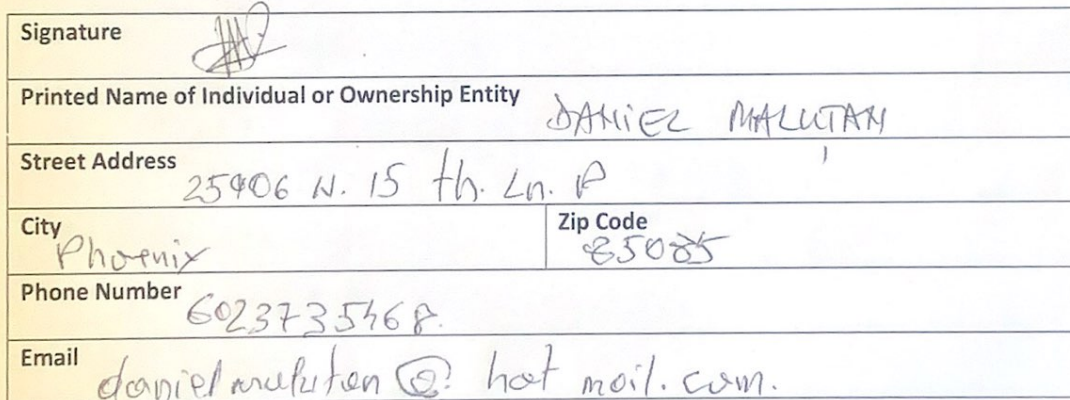 Signature
Printed Name of Individual or Ownership Entity DANIEL MALUTAN
Street Address 25906 N. 15 th. Ln. P
City Phoenix Zip Code 85085
Phone Number 6023735468.
Email danielmalutan @ hotmail.com.